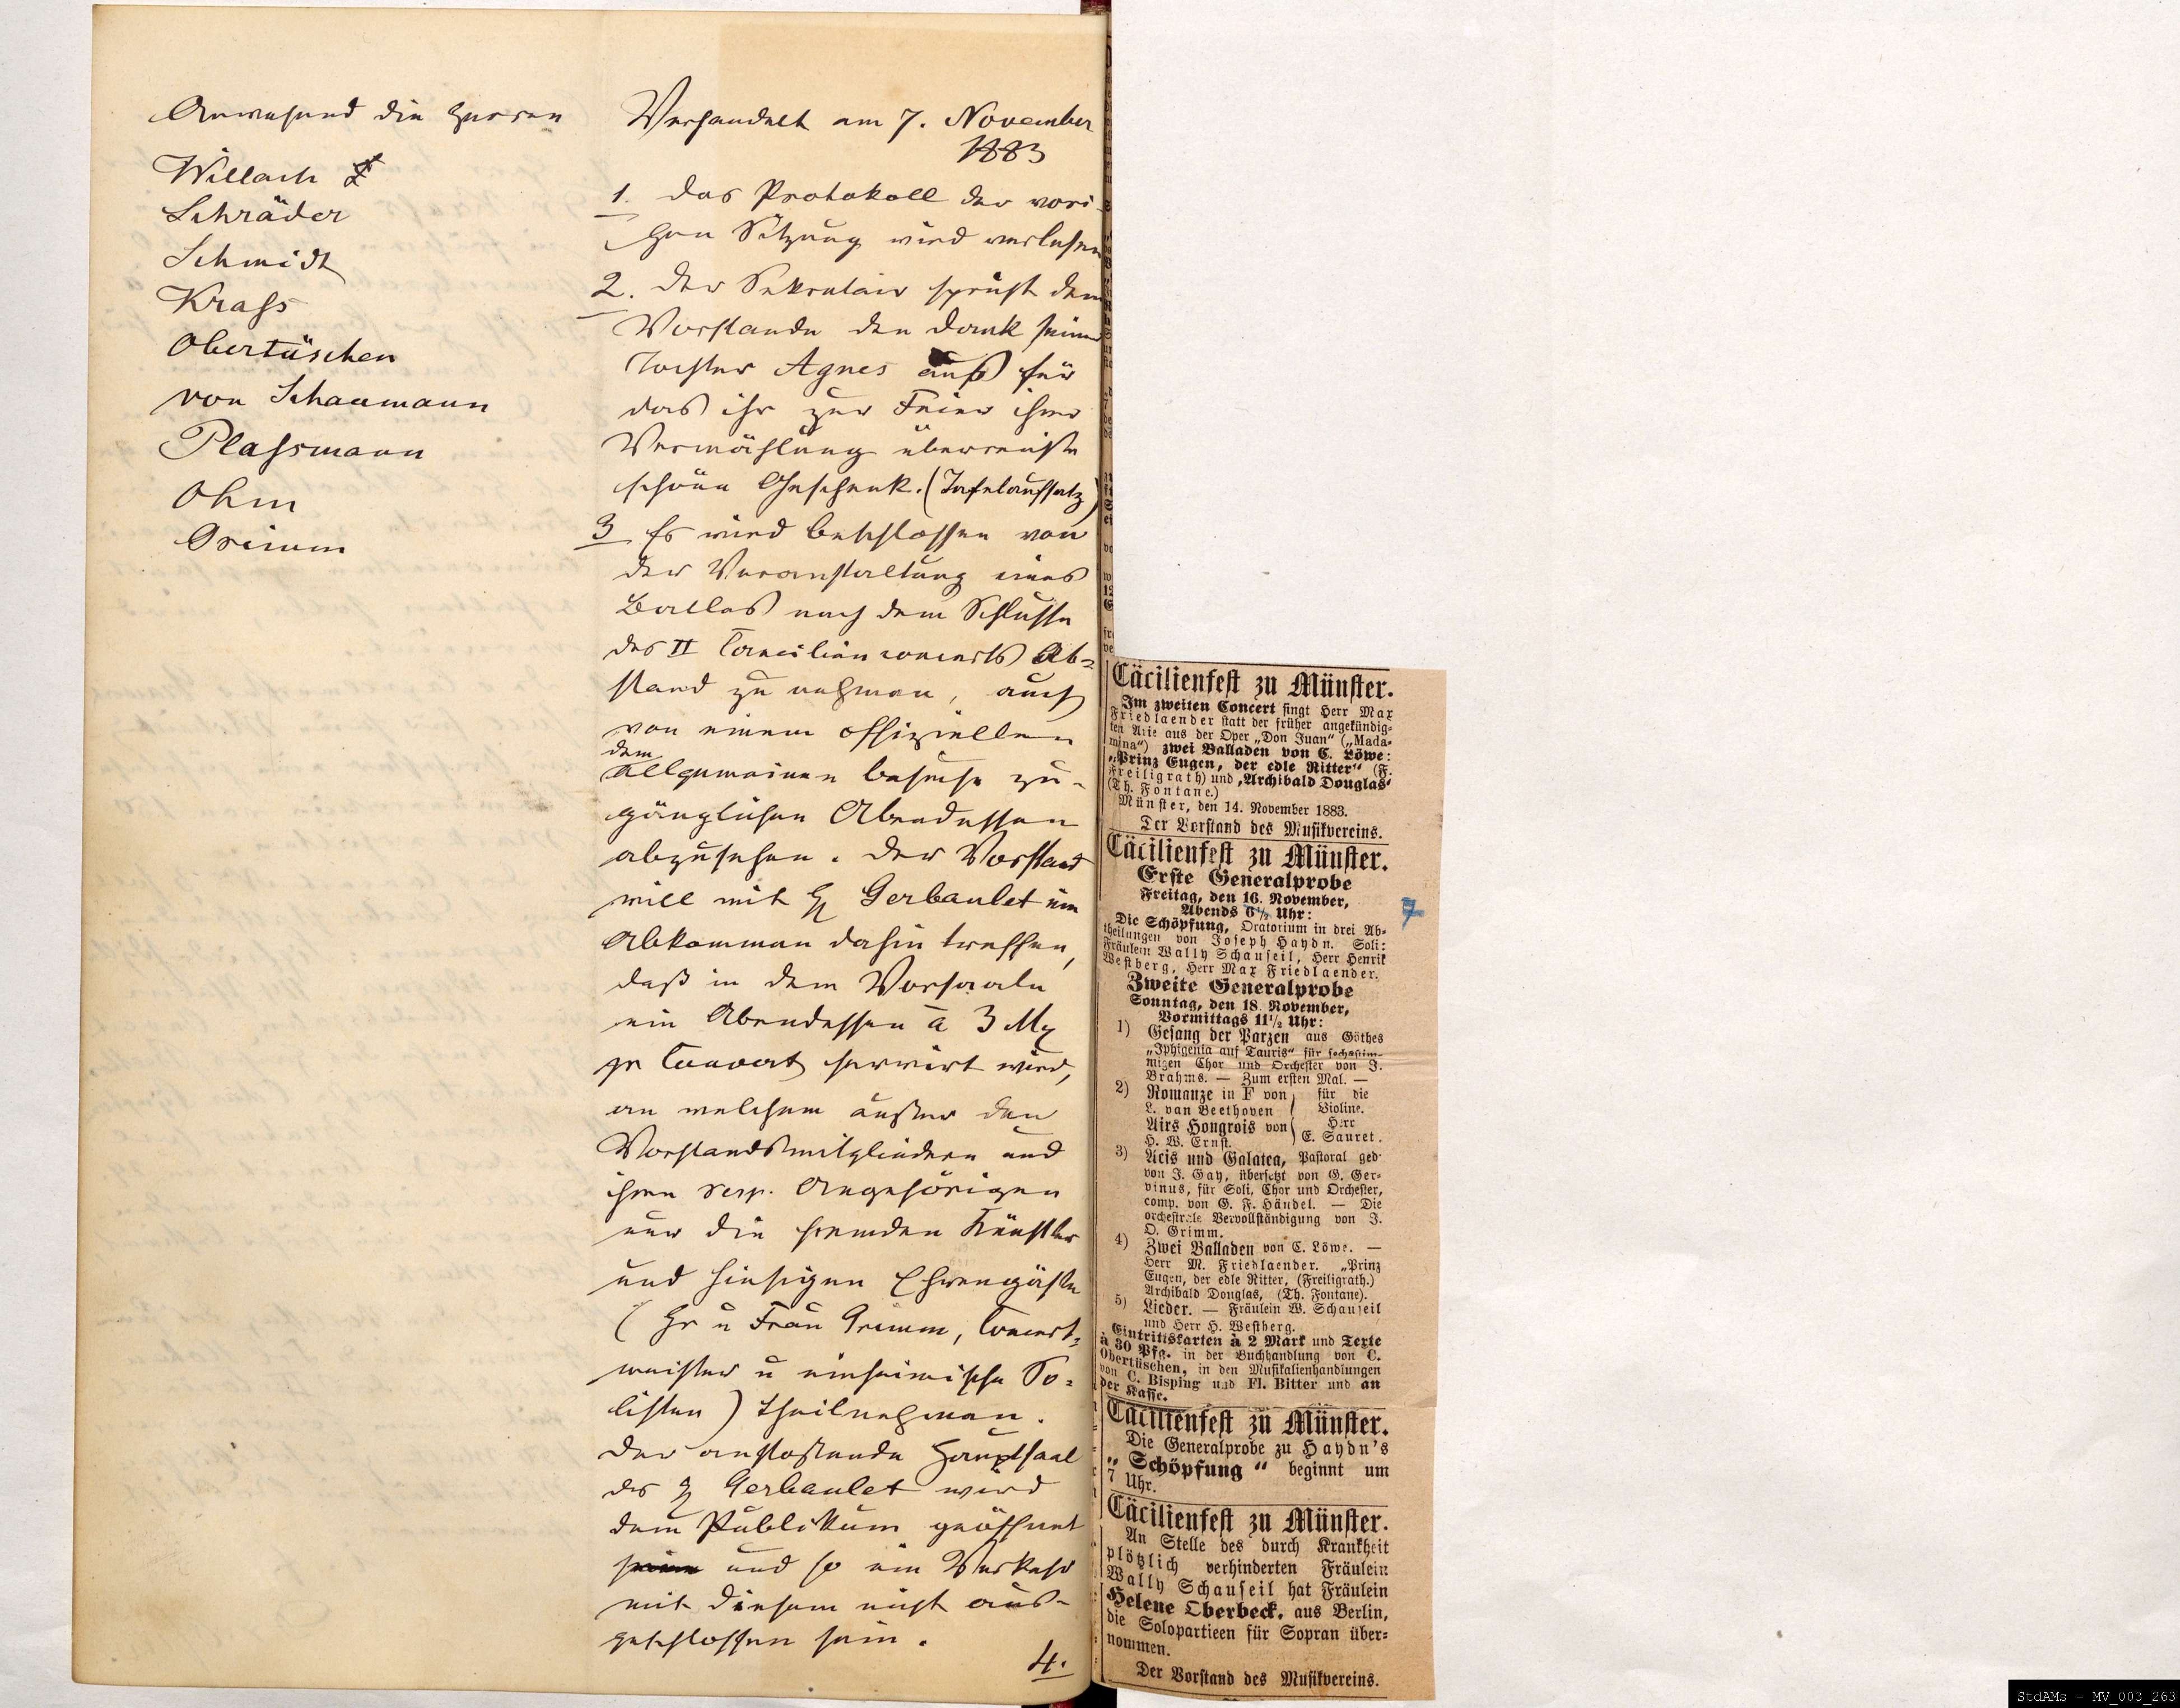 Anwesend die Herren
Willach
Schräder
Schmidt
Krass
Obertüschen
von Schaumann
Plassmann
Ohm
Grimm
Verhandelt am 7. November
1883
1. Das Protokoll der vori-
gen Sitzung wird verlesen
2. Der Sekretair spricht dem
Vorstande den Dank seiner
Tochter Agnes aus für
das ihr zur Feier ihrer
Vermählung überreichte
schöne Geschenk. (Tafelaufsatz)
3 Es wird beschlossen von
der Veranstaltung eines
Balles nach dem Schlusse
des II Caecilienconcerts Ab=
stand zu nehmen, auch
von einem offiziellen
dem
allgemeinen Besuche zu-
gänglichen Abendessen
abzusehen. Der Vorstand
will mit H Gerbaulet ein
Abkommen dahin treffen,
daß in dem Vorsaale
ein Abendessen a 3 Mk
pr Couvert servirt wird,
an welchem außer den
Vorstandsmitgliedern und
ihren resp. Angehörigen
nur die fremden Künstler
und hiesigen Ehrengäste
(Hr u Frau Grimm, Concert=
meister u einheimische So=
listen) theilnehmen.
Der anstoßende Hauptsaal
des H Gerbaulet wird
dem Publikum geöffnet
und so ein Verkehr
mit diesem nicht aus-
geschlossen sein.
4.
Cäcilienfest zu Münster.
Im zweiten Concert singt Herr Max
Friedlaender statt der früher angekündig-
ten Arie aus der Oper „Don Juan" („Mada-
mina") zwei Balladen von C. Löwe:
„Prinz Eugen, der edle Ritter" (F.
Freiligrath) und „Archibald Douglas"
(Th. Fontane.)
Münster, den 14. November 1883.
Der Vorstand des Musikvereins.
Cäcilienfest zu Münster.
Erste Generalprobe
Freitag, den 16. November,
Abends 6½ Uhr:
7
Die Schöpfung, Oratorium in drei Ab-
theilungen von Joseph Haydn. Soli:
Fräulein Wally Schauseil, Herr Henrik
Westberg, Herr Max Friedlaender.
Zweite Generalprobe
Sonntag, den 18. November,
Vormittags 11½ Uhr:
1) Gesang der Parzen aus Göthes
„Iphigenia auf Tauris" für sechsstim-
migen Chor und Orchester von J.
Brahms. — Zum ersten Mal. —
2) Romanze in F von für die
L. van Beethoven Violine.
Airs Hongrois von Herr
H. W. Ernst. E. Sauret.
3) Acis und Galatea, Pastoral ged.
von J. Gay, übersetzt von G. Ger-
vinus, für Soli, Chor und Orchester,
comp. von G. F. Händel. — Die
orchestrale Vervollständigung von J.
O. Grimm.
4) Zwei Balladen von C. Löwe. —
Herr M. Friedlaender. „Prinz
Eugen, der edle Ritter, (Freiligrath.)
Archibald Douglas, (Th. Fontane).
5) Lieder. — Fräulein W. Schauseil
und Herr H. Westberg.
Eintrittskarten à 2 Mark und Texte
à 30 Pfg. in der Buchhandlung von C.
Obertüschen, in den Musikalienhandlungen
von C. Bisping und Fl. Bitter und an
der Kasse.
Cäcilienfest zu Münster.
Die Generalprobe zu Haydn's
„Schöpfung" beginnt um
7 Uhr.
Cäcilienfest zu Münster.
An Stelle des durch Krankheit
plötzlich verhinderten Fräulein
Wally Schauseil hat Fräulein
Helene Oberbeck, aus Berlin,
die Solopartieen für Sopran über-
nommen.
Der Vorstand des Musikvereins.
StdAMs - MV_003_263